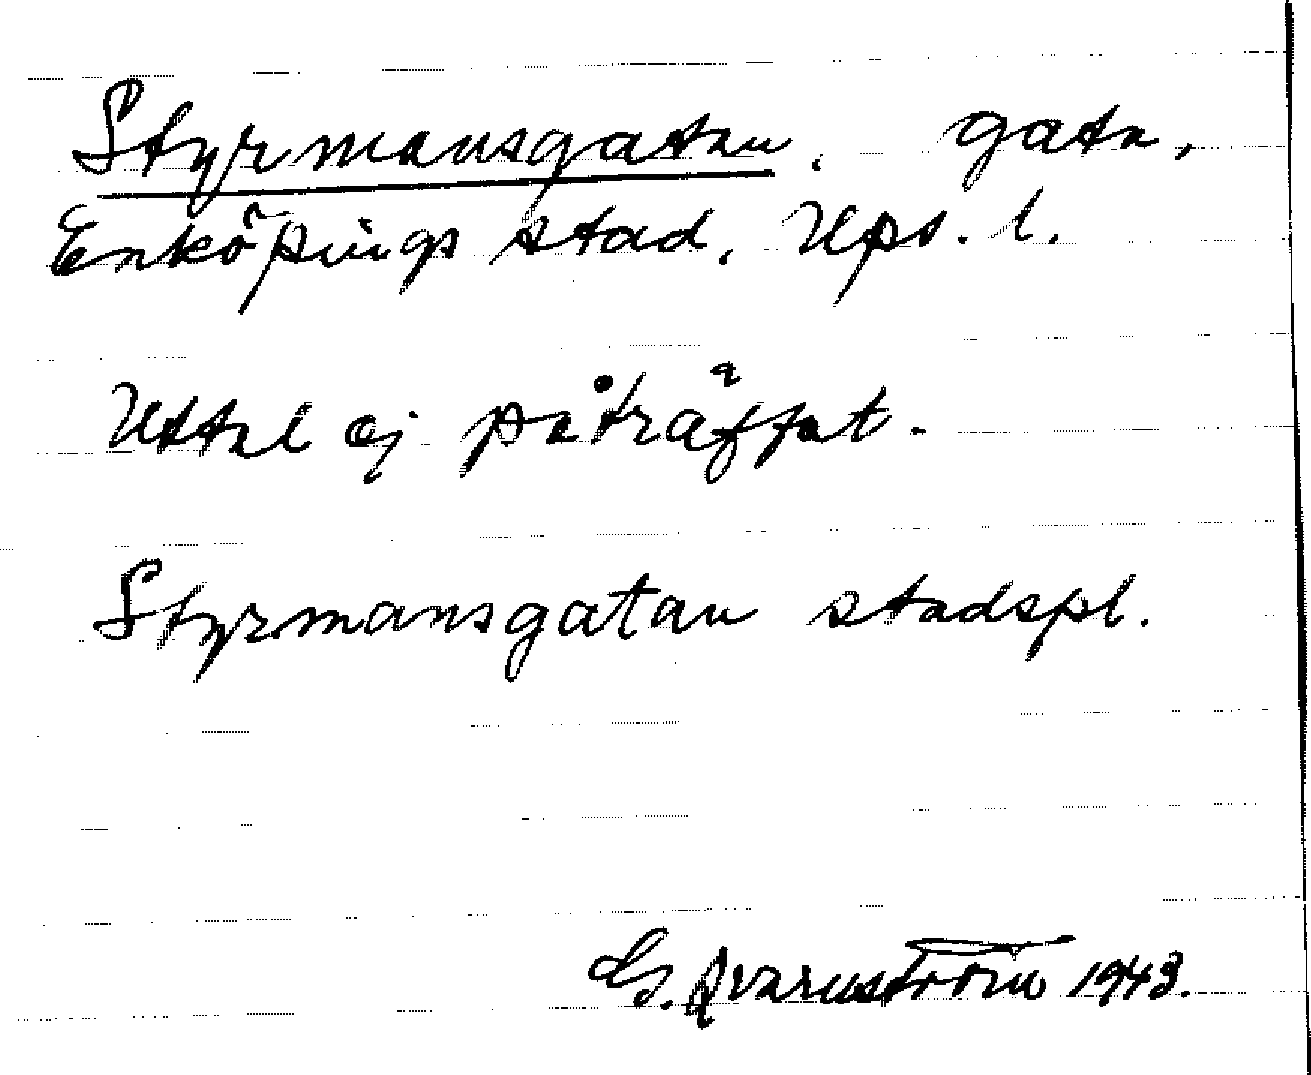 Styrmansgatan, gata,
Enköpings stad, Ups. l.
Uttal ej påträffat.
Styrmansgatan stadspl.
G. Qvarnström 1943.